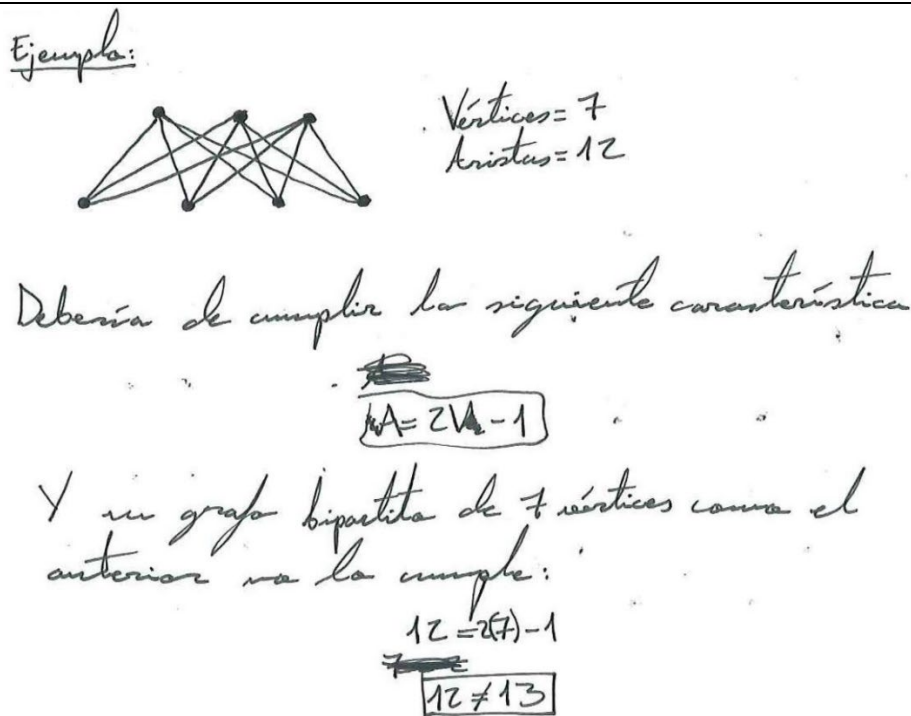 Ejemplo:
Vértices = 7
Aristas = 12
Debería de cumplir la siguiente característica
A = 2V - 1
Y un grafo bipartito de 7 vértices como el
anterior no la cumple:
12 = 2(7) - 1
12 ≠ 13